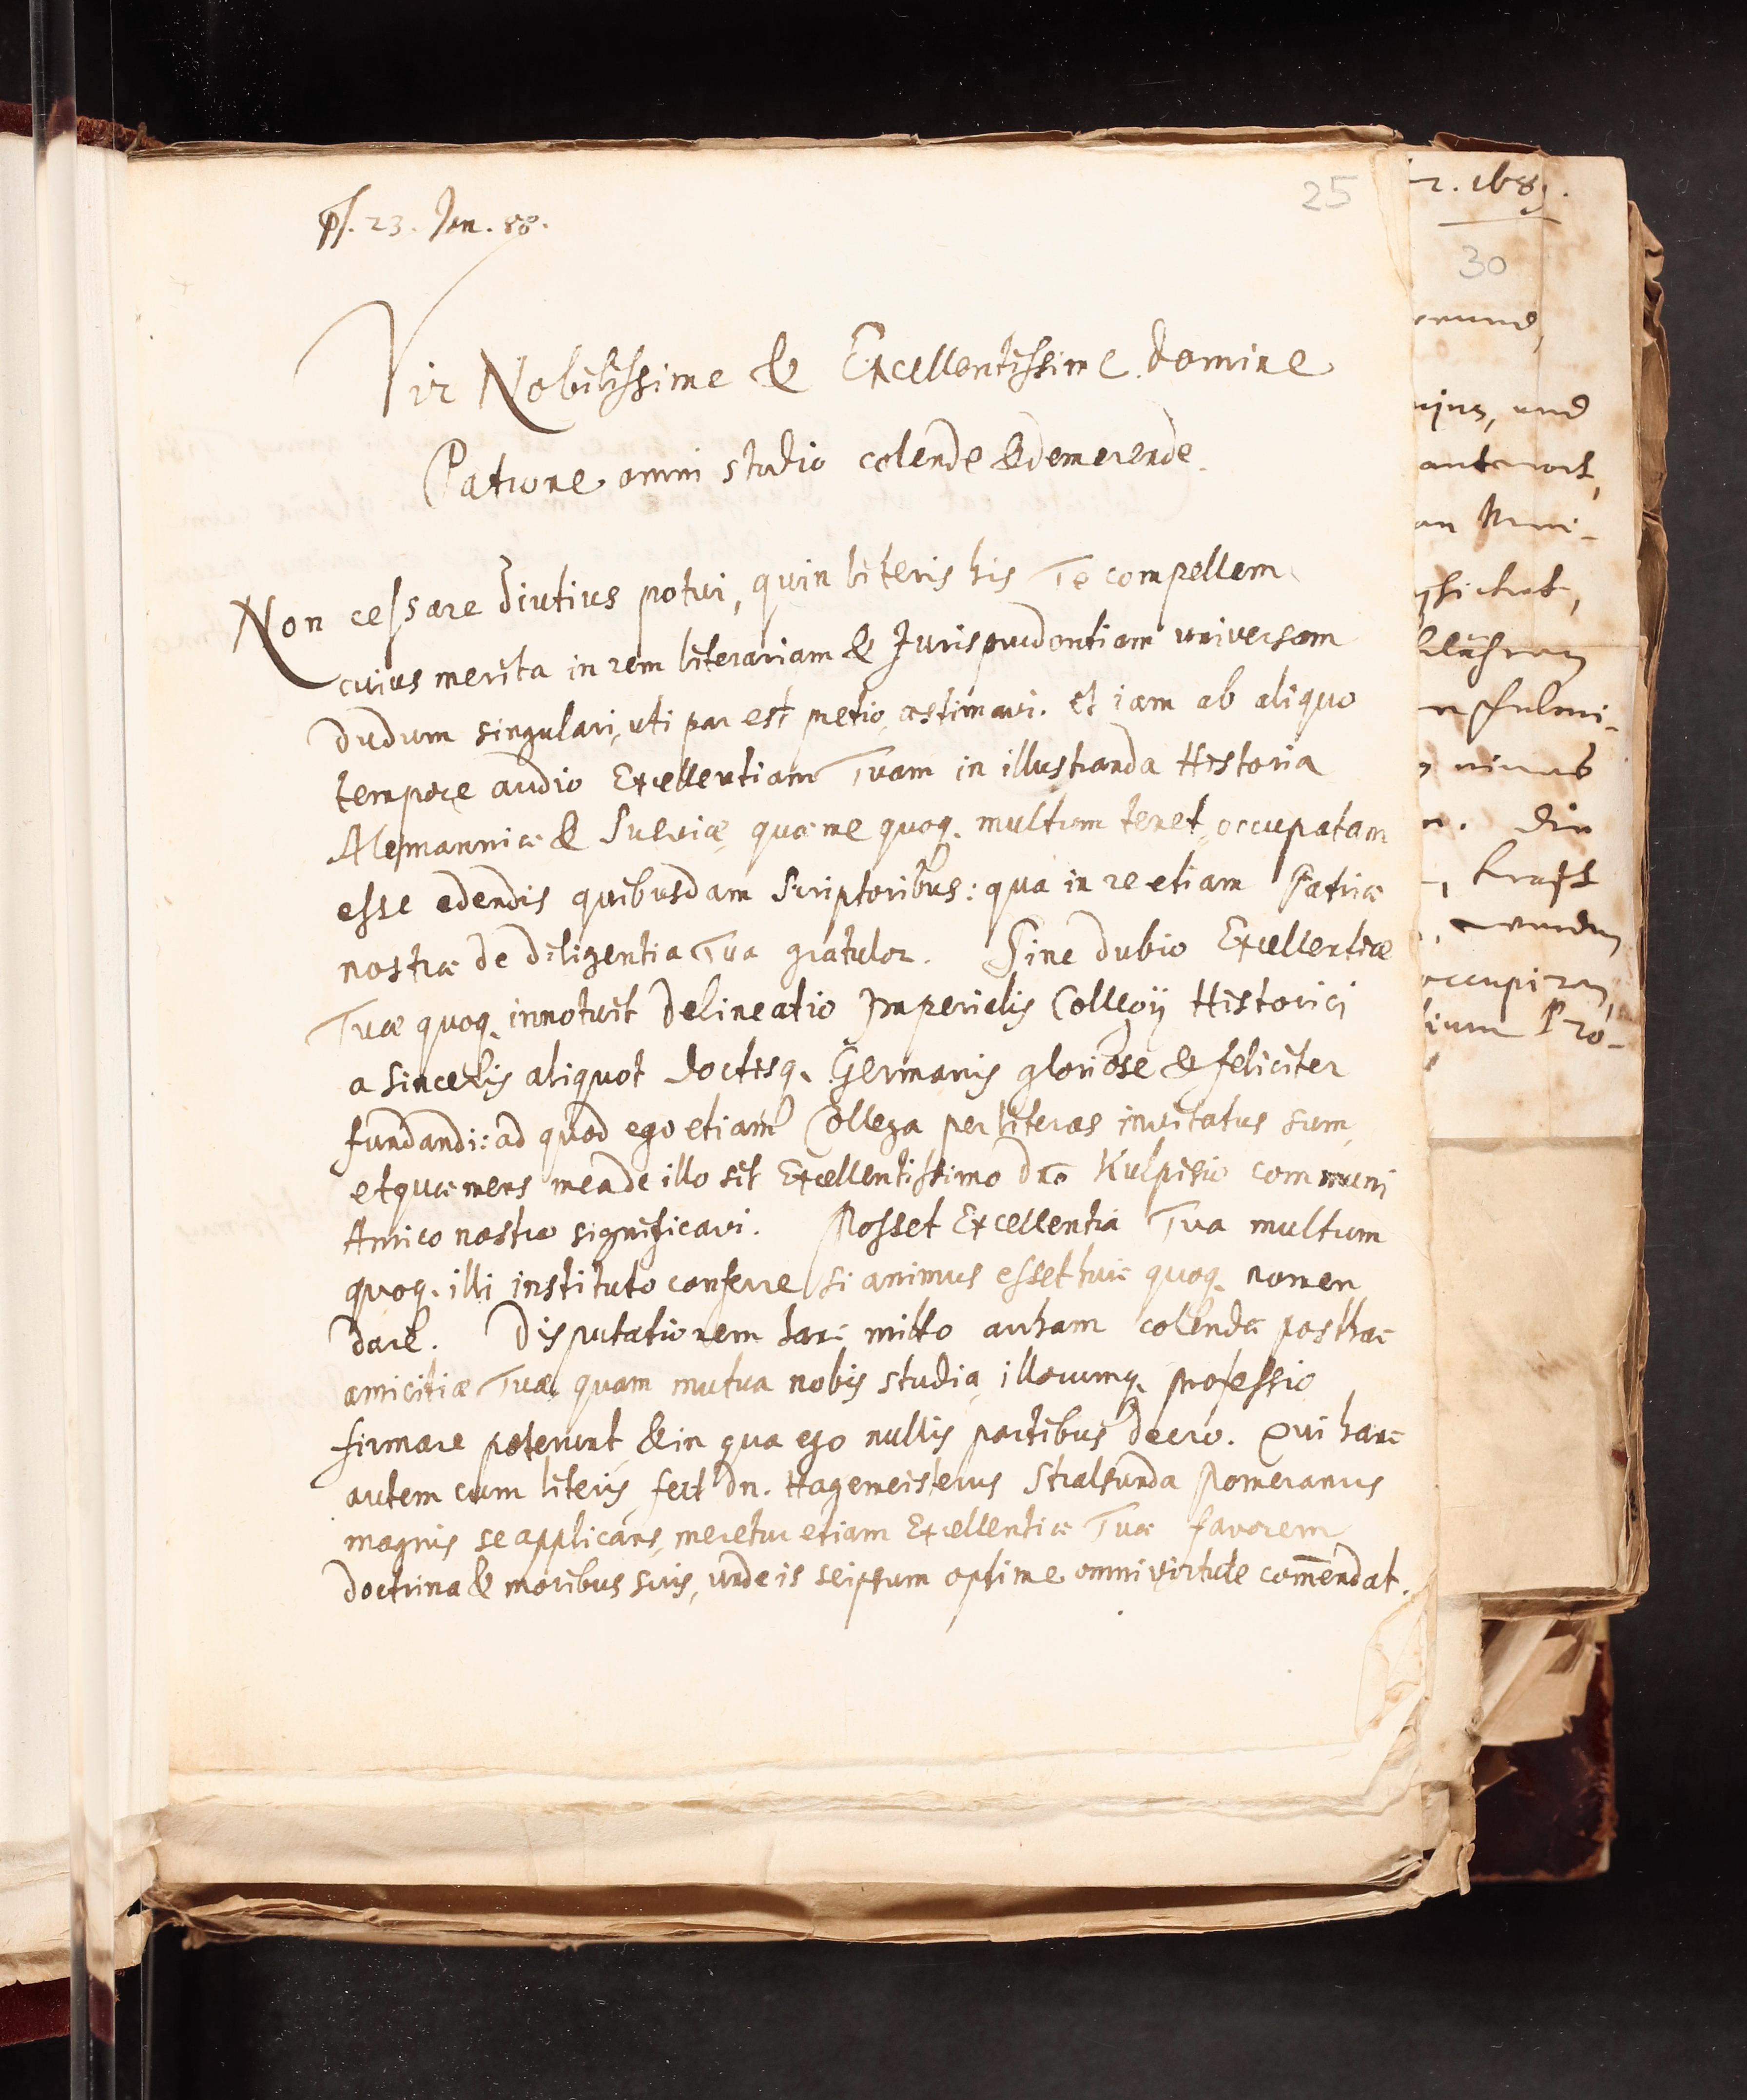 25
ps. 23. Jan. 88.
Vir Nobilissime & Excellentissime Domine
Patrone omni studio colende & demerende.
Non cessare diutius potui, quin literis his Te compellem
cuius merita in rem literariam & Jurisprudentiam universam
dudum singulari, uti par est pretio, æstimavi. Et iam ab aliquo
tempore audio Excellentiam Tuam in illustranda Historia
Alemanniæ & Sueviæ, quæ me quoq. multum tenet, occupatam
esse edendis quibusdam Scriptoribus: qua in re etiam Patriæ
nostræ de diligentia Tua gratulor. Sine dubio Excellentiæ
Tuæ quoq. innotuit Delineatio Imperialis Collegij Historici
a sinceris aliquot doctisq. Germanis gloriose & feliciter
fundandi: ad quod ego etiam Collega per literas invitatus sum,
et quæ mens mea de illo sit Excellentissimo Dno Kulpisio communi
Amico nostro significavi. Posset Excellentia Tua multum
quoq. illi instituto conferre si animus esset huic quoq. nomen
dare. Disputationem hanc mitto arrham colendæ posthac
amicitiæ Tuæ, quam mutua nobis studia, illorumq. professio
firmare poterunt, & in qua ego nullis partibus deero. Qui hanc
autem cum literis fert Dn. Hagemeisterus Stralsunda Pomeranus
magnis se applicans, meretur etiam Excellentiæ Tuæ favorem
doctrina & moribus suis, unde is seipsum optime omni virtute com̄endat.
r. 1689.
30
und
antwort,
an
und
nimmb
n. die
, krafft
occupiren,
Pro-